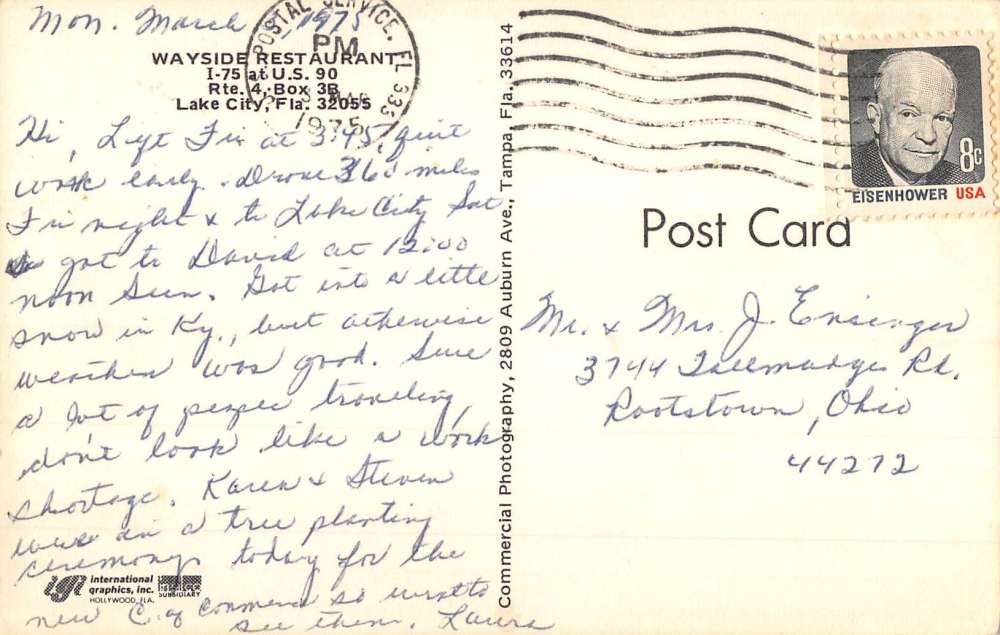 Mon. March 1975
POSTAL SERVICE, FL 335
PM
MAR
1975
WAYSIDE RESTAURANT
I-75 at U.S. 90
Rte. 4, Box 3B
Lake City, Fla. 32055
Hi, Left Fri at 3:45, quit
work early. Drove 360 miles
Fri night & to Lake City Sat
got to David at 12:00
noon Sun. Got into a little
snow in Ky., but otherwise
weather was good. Sure
a lot of people traveling,
don't look like a work
shortage. Karen & Steven
were in a tree planting
ceremony today for the
new C. of Commerce so went to
see them. Laura
igi international
graphics, inc.
HOLLYWOOD, FLA.
SUBSIDIARY
Commercial Photography, 2809 Auburn Ave., Tampa, Fla. 33614
8c
EISENHOWER USA
Post Card
Mr. & Mrs. J. Ensinger
3744 Tallmadge Rd.
Rootstown, Ohio
44272